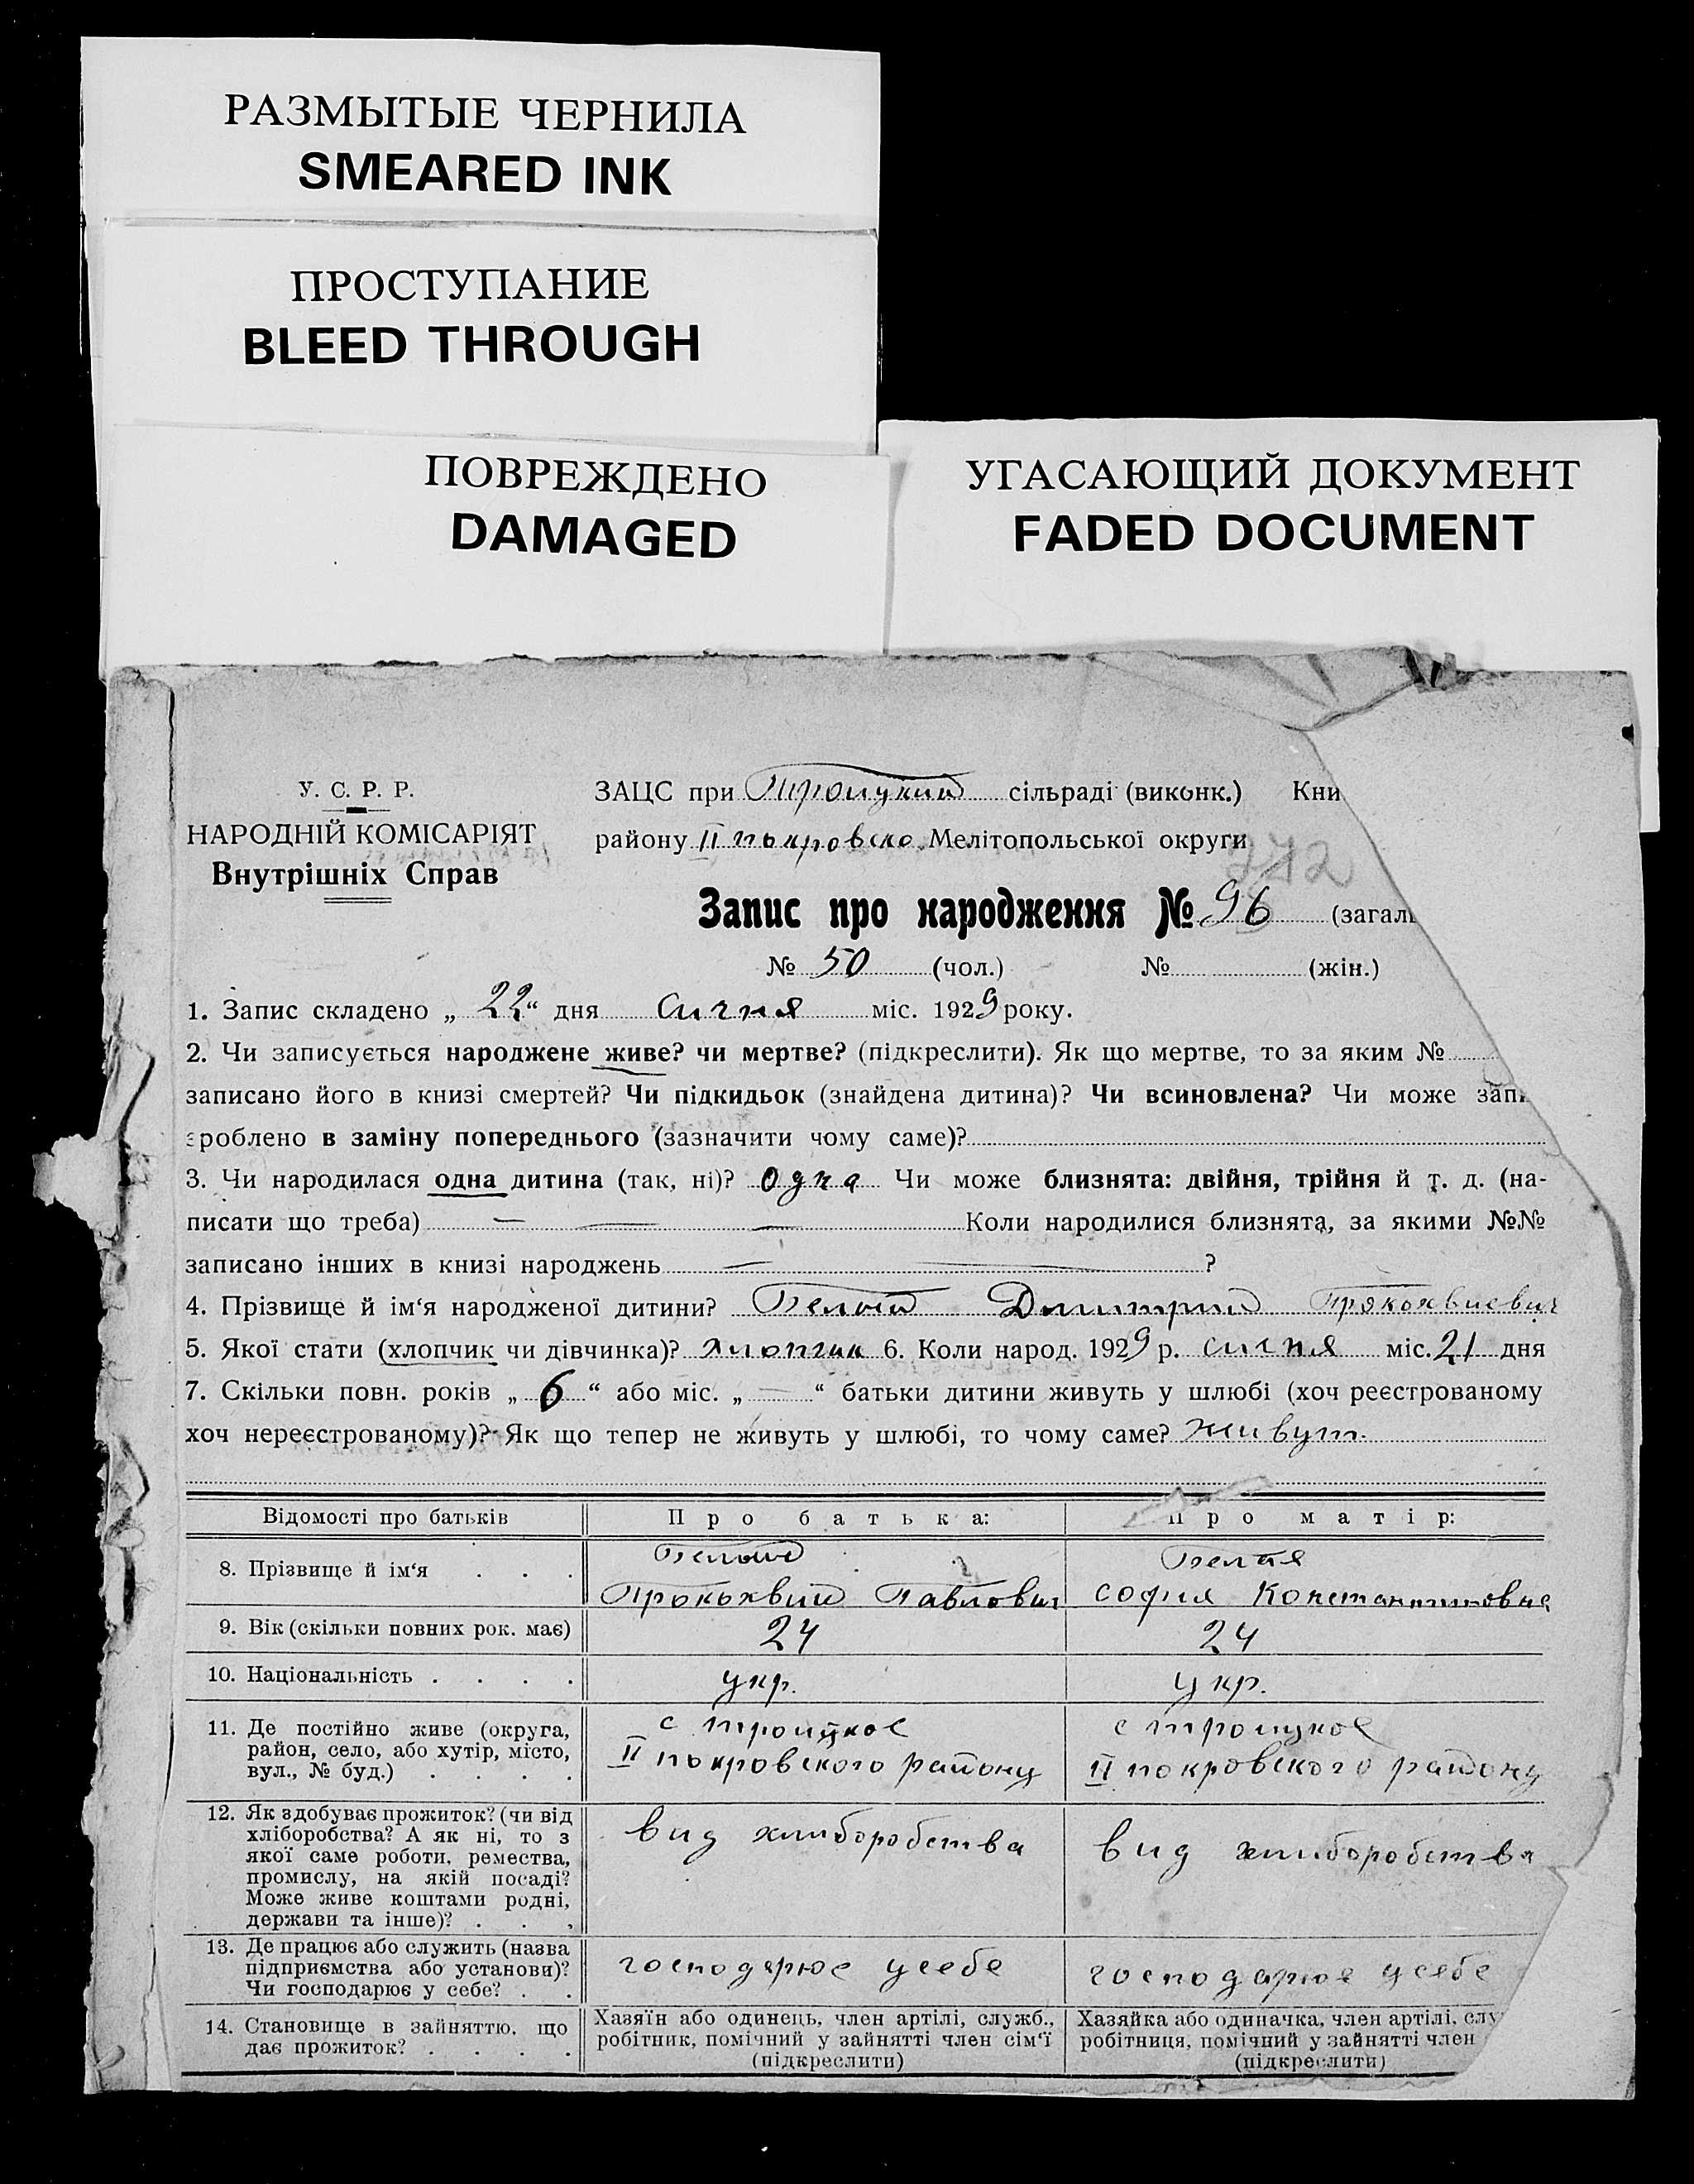 РАЗМЫТЫЕ ЧЕРНИЛА
SMEARED INK
ПРОСТУПАНИЕ
BLEED THROUGH
ПОВРЕЖДЕНО
DAMAGED
УГАСАЮЩИЙ ДОКУМЕНТ
FADED DOCUMENT
У. С. Р. Р.
НАРОДНІЙ КОМІСАРІЯТ
Внутрішніх Справ
ЗАЦС при Троицкий сільраді (виконк.) Кни
району II покровско Мелітопольської округи
372
Запис про народження № 96 (загаль
№ 50 (чол.) № (жін.)
1. Запис складено „ 22 “ дня Сичня міс. 1929 року.
2. Чи записується народжене живе? чи мертве? (підкреслити). Як що мертве, то за яким №
записано його в книзі смертей? Чи підкидьок (знайдена дитина)? Чи всиновлена? Чи може запи
зроблено в заміну попереднього (зазначити чому саме)?
3. Чи народилася одна дитина (так, ні)? Одна Чи може близнята: двійня, трійня й т. д. (на-
писати що треба) — — — Коли народилися близнята, за якими №№
записано інших в книзі народжень — — ?
4. Прізвище й ім‘я народженої дитини? Белый Дмитрий Прокохвиевич
5. Якої стати (хлопчик чи дівчинка)? Хлопчик 6. Коли народ. 1929 р. сичня міс. 21 дня
7. Скільки повн. років „ 6 “ або міс. „ — “ батьки дитини живуть у шлюбі (хоч реєстрованому
хоч нереєстрованому)? Як що тепер не живуть у шлюбі, то чому саме? живут.
Відомості про батьків Про батька: Про матір:
8. Прізвище й ім‘я . . .
Белый
Прокохвий Павлович
Белая
София Константиновна
9. Вік (скільки повних рок. має) 24 24
10. Національність . . . . укр. укр.
11. Де постійно живе (округа,
район, село, або хутір, місто,
вул., № буд.) . . . .
с троицкое
II покровского району
с троицкое
II покровского району
12. Як здобуває прожиток? (чи від
хліборобства? А як ні, то з
якої саме роботи, ремества,
промислу, на якій посаді?
Може живе коштами родні,
держави та інше)? . . .
вид хлиборобства
вид хлиборобства
13. Де працює або служить (назва
підприємства або установи)?
Чи господарює у себе? . .
господарює усебе
господарює усебе
14. Становище в зайняттю, що
дає прожиток? . . . .
Хазяїн або одинець, член артілі, служб.,
робітник, помічний у зайнятті член сім‘ї
(підкреслити)
Хазяйка або одиначка, член артілі, слу
робітниця, помічний у зайнятті член
(підкреслити)